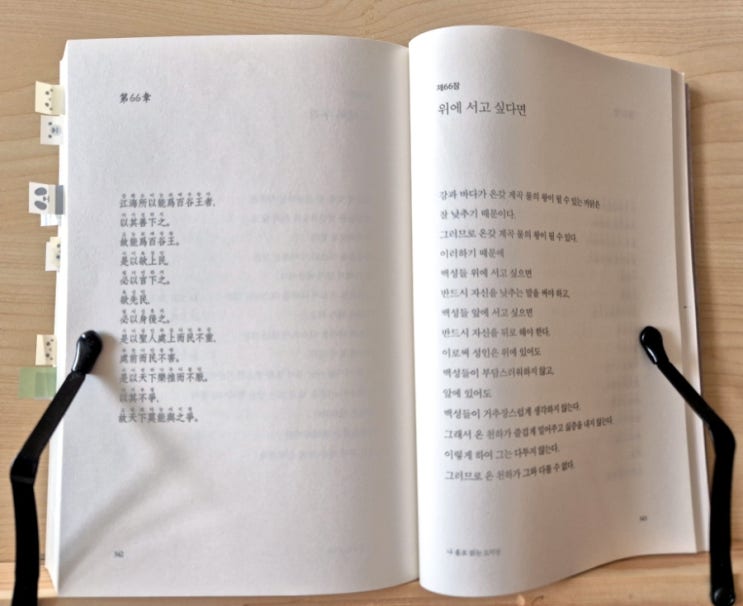 第66章
江海所以能爲百谷王者,
以其善下之。
故能爲百谷王。
是以欲上民,
必以言下之。
欲先民,
必以身後之。
是以聖人處上而民不重,
處前而民不害。
是以天下樂推而不厭。
以其不爭,
故天下莫能與之爭。
342
제66장
위에 서고 싶다면
강과 바다가 온갖 계곡 물의 왕이 될 수 있는 까닭은
잘 낮추기 때문이다.
그러므로 온갖 계곡 물의 왕이 될 수 있다.
이러하기 때문에
백성들 위에 서고 싶으면
반드시 자신을 낮추는 말을 써야 하고,
백성들 앞에 서고 싶으면
반드시 자신을 뒤로 해야 한다.
이로써 성인은 위에 있어도
백성들이 부담스러워하지 않고,
앞에 있어도
백성들이 거추장스럽게 생각하지 않는다.
그래서 온 천하가 즐겁게 밀어주고 싫증을 내지 않는다.
이렇게 하여 그는 다투지 않는다.
그러므로 온 천하가 그와 다툴 수 없다.
나 홀로 읽는 도덕경
343